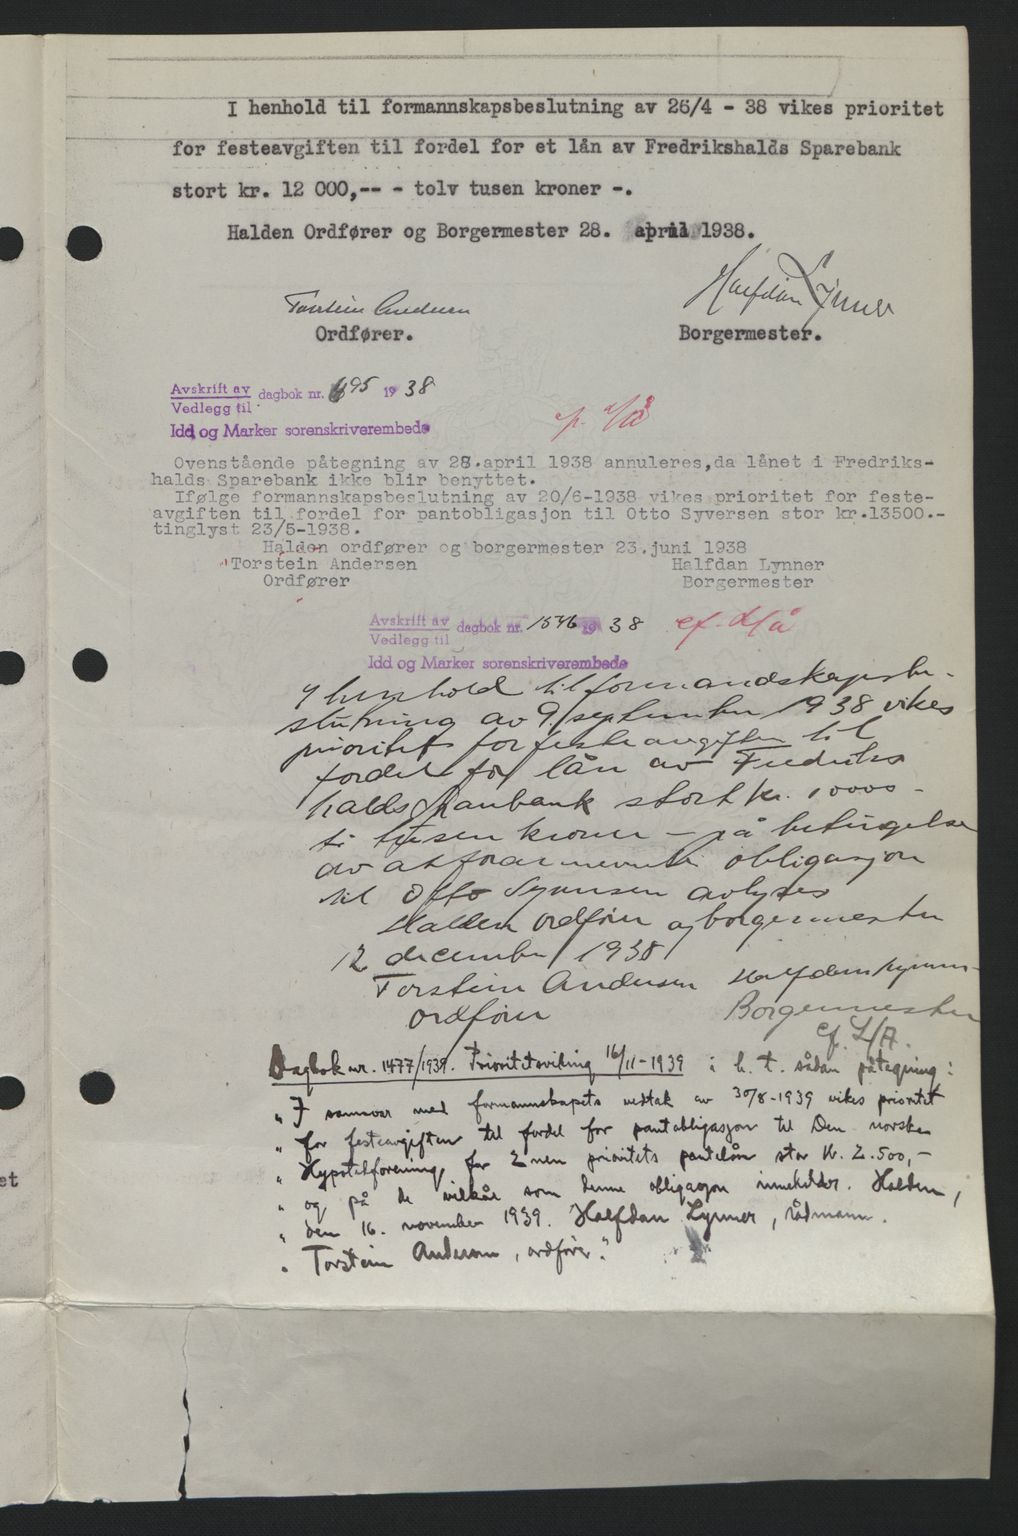 I henhold til formannskapsbeslutning av 26/4 - 38 vikes prioritet
for festeavgiften til fordel for et lån av Fredrikshalds Sparebank
stort kr. 12 000,-- - tolv tusen kroner -.
Halden Ordfører og Borgermester 28. april 1938.
Torstein Andersen
Halfdan Lynner
Ordfører.
Borgermester.
Avskrift av
Vedlegg til dagbok nr. 695 19 38
Idd og Marker sorenskriverembede
Ovenstående påtegning av 28.april 1938 annuleres,da lånet i Fredriks-
halds Sparebank ikke blir benyttet.
Ifølge formannskapsbeslutning av 20/6-1938 vikes prioritet for feste-
avgiften til fordel for pantobligasjon til Otto Syversen stor kr.13500.-
tinglyst 23/5-1938.
Halden ordfører og borgermester 23.juni 1938
Torstein Andersen
Halfdan Lynner
Ordfører
Borgermester
Avskrift av
Vedlegg til dagbok nr. 1536 19 38
Idd og Marker sorenskriverembede
I henhold til formandskapsbe-
slutning av 9. september 1938 vikes
prioritet for festeavgiften til
fordel for lån av Fredriks
halds Sparebank stort kr. 10000-
ti tusen kroner - på betingelse
av at foran nevnte obligasjon
til Otto Syversen avlyses
Halden ordfører og borgermester
12 december 1938
Torstein Andersen Halfdan Lynner
ordfører Borgermester
Dagbok nr. 1477/1939. Prioritetsviking 16/11-1939 i h. t. sådan påtegning:
"I samsvar med formannskapets vedtak av 30/8-1939 vikes prioritet
" for festeavgiften til fordel for pantobligasjon til Den norske
" Hypotekforening, for 2nen prioritets pantelån stor kr. 2.500,-
" og på de vilkår som denne obligasjon inneholder. Halden,
" den 16. november 1939. Halfdan Lynner, rådmann.
" Torstein Andersen, ordfører."
et